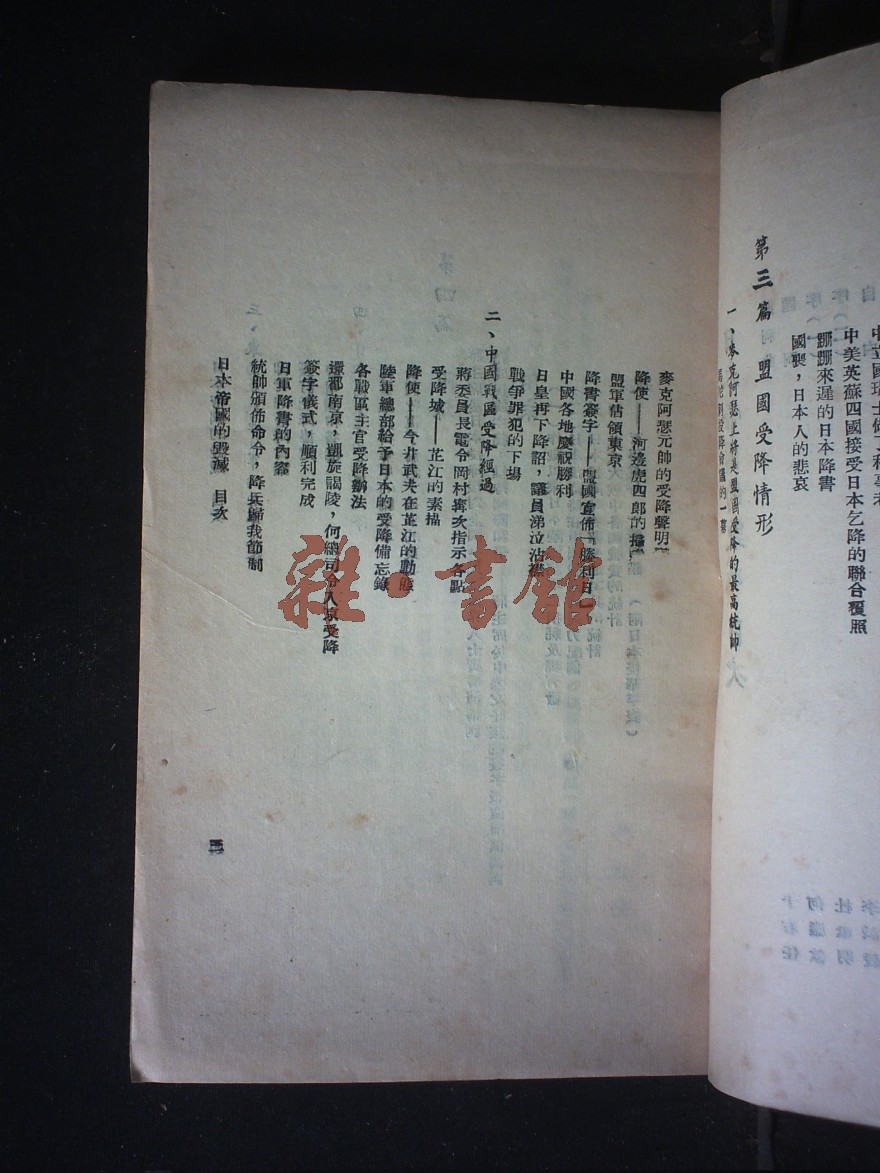 國喪，日本人的悲哀
中美英蘇四國接受日本乞降的聯合覆照
姍姍來遲的日本降書
第三篇 盟國受降情形
一、麥克阿瑟上將是盟國受降的最高統帥
麥克阿瑟元帥的受降聲明
降使——河邊虎四郎的
盟軍佔領東京
降書簽字——盟國宣佈「勝利日」
中國各地慶祝勝利
日皇再下降詔，議員涕泣沾襟
戰爭罪犯的下場
二、中國戰區受降經過
蔣委員長電令岡村寗次指示各點
受降城——芷江的素描
降使——今井武夫在芷江的動態
陸軍總部給予日本的受降備忘錄
各戰區主官受降辦法
還都南京，凱旋謁陵，何總司令入京受降
簽字儀式，順利完成
日軍降書的內容
統帥頒佈命令，降兵歸我節制
日本帝國的毀滅 目次
三
雜·書館